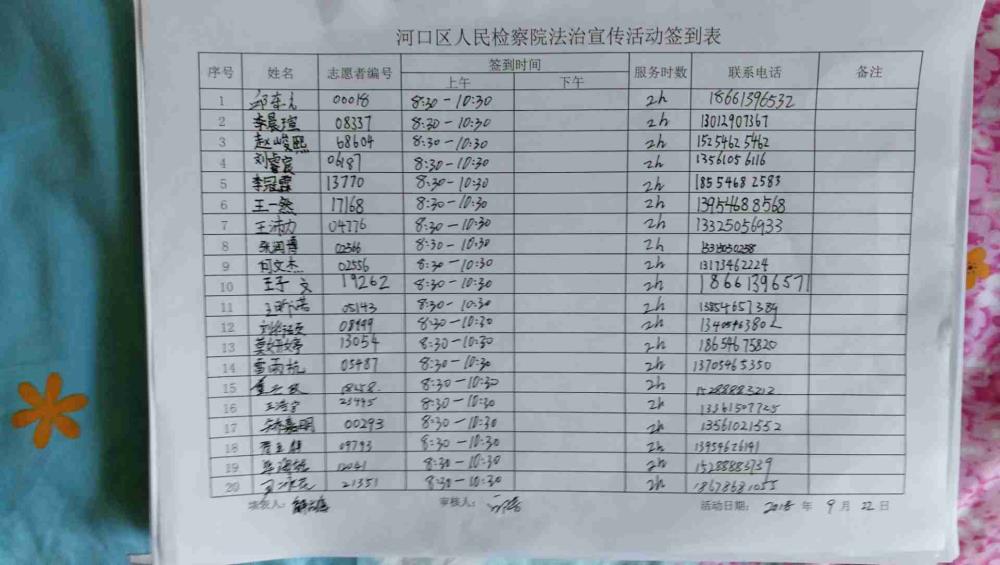 河口区人民检察院法治宣传活动签到表
序号 姓名 志愿者编号 签到时间 服务时数 联系电话 备注
上午 下午
1 00018 8:30-10:30 2h 18661396532
2 李晨瑄 08337 8:30-10:30 2h 13012907367
3 赵峻熙 68604 8:30-10:30 2h 15254625462
4 刘睿宸 06187 8:30-10:30 2h 13561056116
5 李冠霖 13770 8:30-10:30 2h 18554682583
6 王一然 17168 8:30-10:30 2h 13954688568
7 王沛力 04776 8:30-10:30 2h 13325056933
8 张润博 02566 8:30-10:30 2h
9 何文杰 02556 8:30-10:30 2h 13173462224
10 王子文 19262 8:30-10:30 2h 18661396571
11 05143 8:30-10:30 2h 15854657384
12 08499 8:30-10:30 2h 13405463802
13 13054 8:30-10:30 2h 18654675820
14 雷雨杭 05487 8:30-10:30 2h 13705465350
15 8:30-10:30 2h 15288883212
16 23445 8:30-10:30 2h 13561507725
17 00293 8:30-10:30 2h 13561021552
18 09793 8:30-10:30 2h 13954626141
19 12041 8:30-10:30 2h 15288883739
20 21351 8:30-10:30 2h 18678681055
填表人: 审核人: 活动日期: 2018 年 9 月 22 日